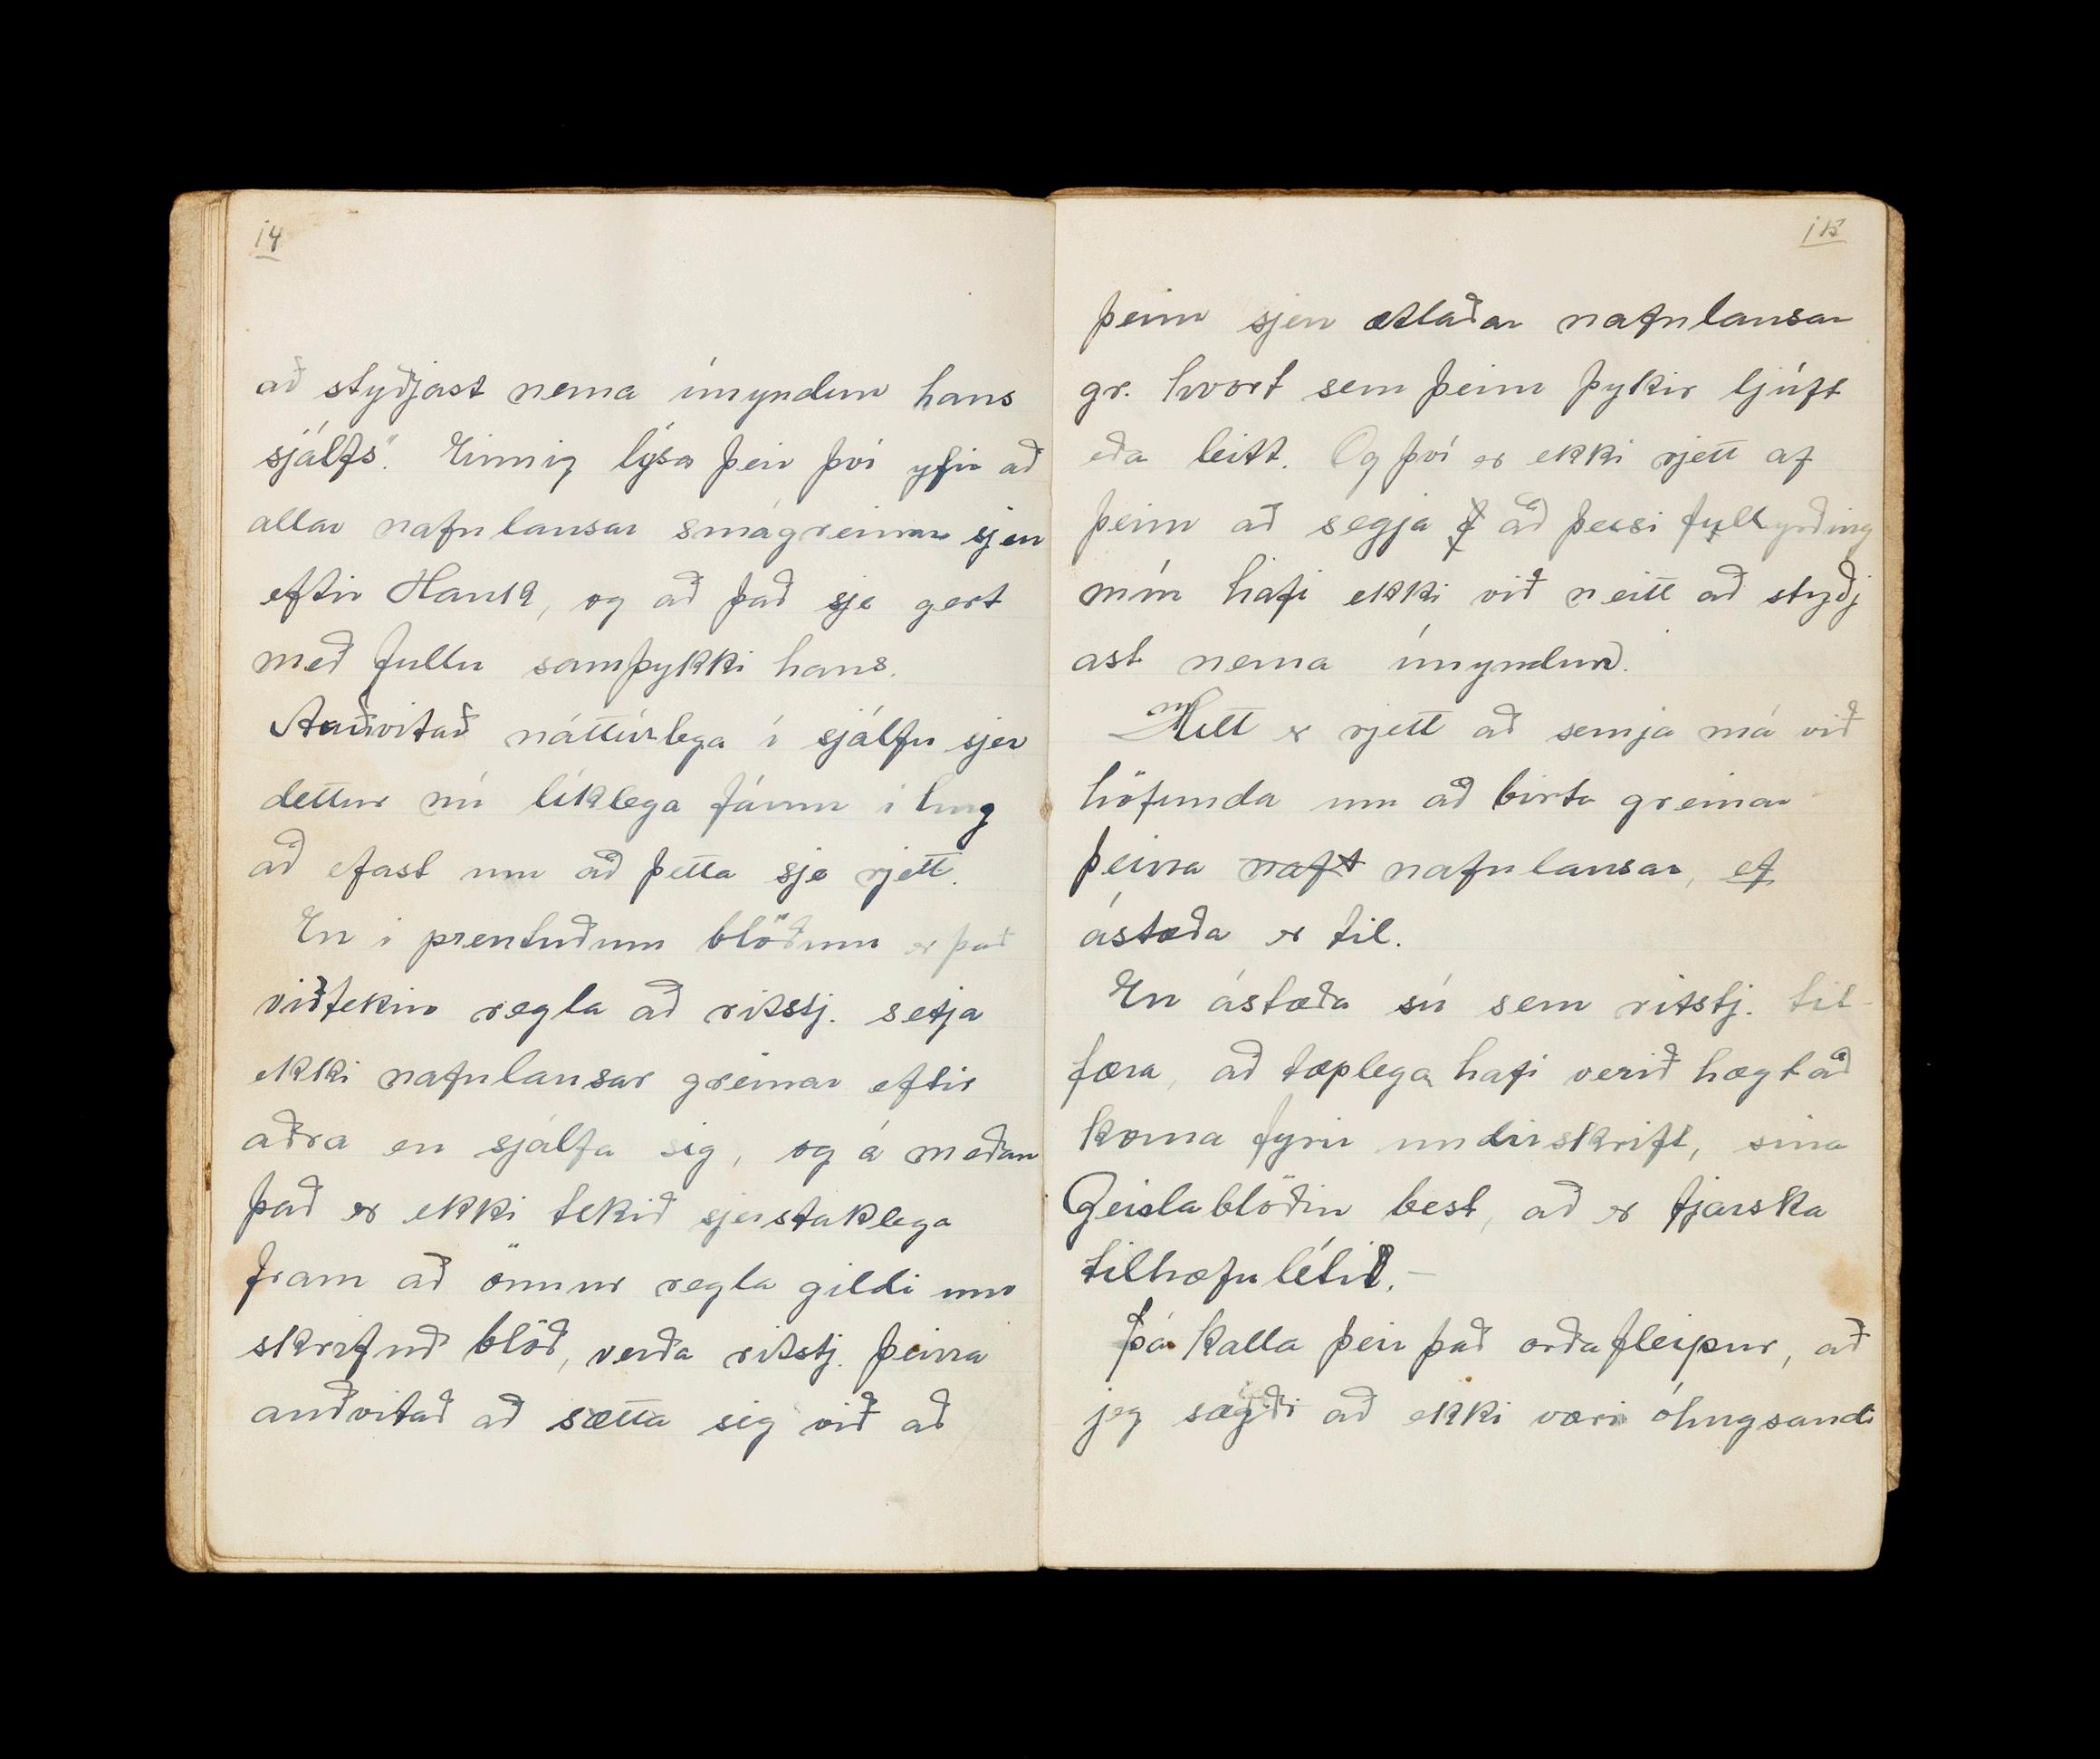 14
að styðjast nema ímyndun hans
sjálfs". Einnig lýsa þeir því yfir að
allar nafnlausar smágreinar sjeu
eftir Hauk, og að það sje gert
með fullu samþykki hans.
Auðvitað náttúrlega í sjálfu sjer
dettur nú líklega fáum í hug
að efast um að þetta sje rjett.
En i prentuðum blöðum er það
viðtekin regla að ritstj. setja
ekki nafnlausar greinar eftir
aðra en sjálfa sig, og á meðan
það er ekki tekið sjerstaklega
fram að önnur regla gildi um
skrifuð blöð, verða ritstj. þeirra
auðvitað að sætta sig við að
15
þeim sjeu ætlaðar nafnlausar
gr. hvort sem þeim þykir ljúft
eða leitt. Og því er ekki rjett af
þeim að segja að þessi fullyrðing
mín hafi ekki við neitt að styðj
ast nema ímyndun.
Hitt er rjett að semja má við
höfunda um að birta greinar
þeirra naft nafnlausar, ef
ástæða er til.
En ástæða sú sem ritstj. til-
færa, að tæplega hafi verið hægt að
koma fyrir undirskrift, sína
Geislablöðin best, að er fjarska
tilhæfulítil. —
Þá kalla þeir það orðafleipur, að
jeg sagði að ekki væri óhugsandi